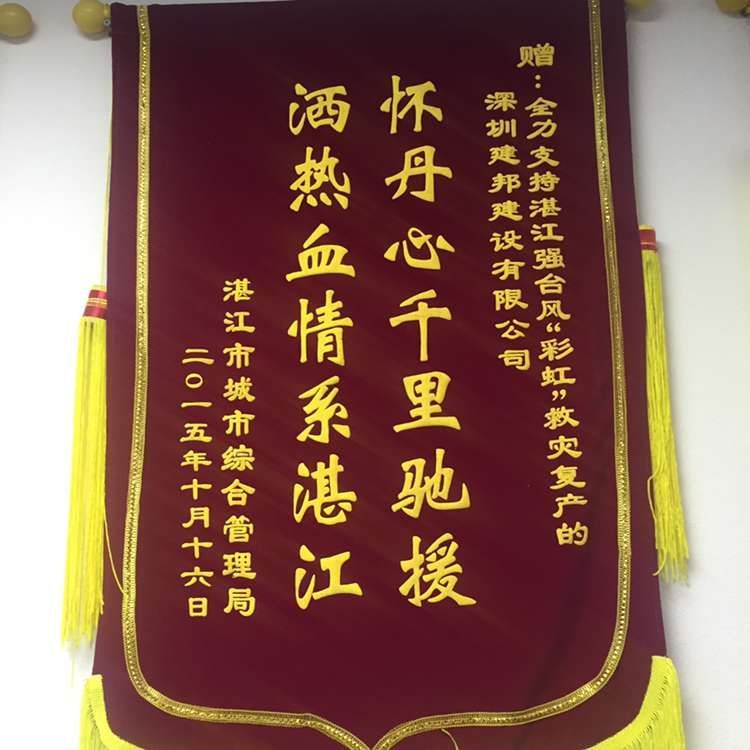 赠：全力支持湛江强台风“彩虹”救灾复产的
深圳建邦建设有限公司
怀丹心千里驰援
洒热血情系湛江
湛江市城市综合管理局
二〇一五年十月十六日